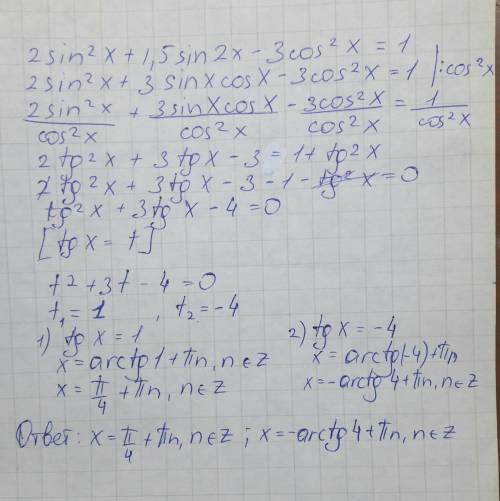 2sin²x + 1,5sin2x - 3cos²x = 1
2sin²x + 3sinxcosx - 3cos²x = 1 |:cos²x
2sin²x/cos²x + 3sinxcosx/cos²x - 3cos²x/cos²x = 1/cos²x
2tg²x + 3tgx - 3 = 1 + tg²x
2tg²x + 3tgx - 3 - 1 - tg²x = 0
tg²x + 3tgx - 4 = 0
[tgx = t]
t² + 3t - 4 = 0
t₁ = 1, t₂ = -4
1) tgx = 1
x = arctg1 + πn, n∈z
x = π/4 + πn, n∈z
2) tgx = -4
x = arctg(-4) + πn
x = -arctg4 + πn, n∈z
Ответ: x = π/4 + πn, n∈z; x = -arctg4 + πn, n∈z